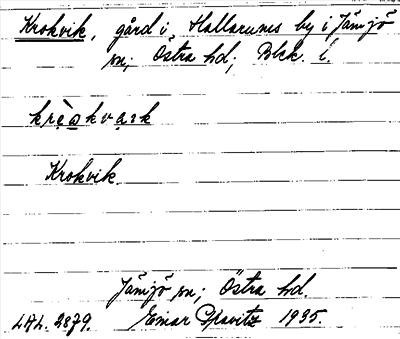 Krokvik, gård i Hallarums by i Jämjö
sn; Östra hd; Blek. l.
Krokvik.
Jämjö sn; Östra hd.
LAL. 2879. Einar 1935.